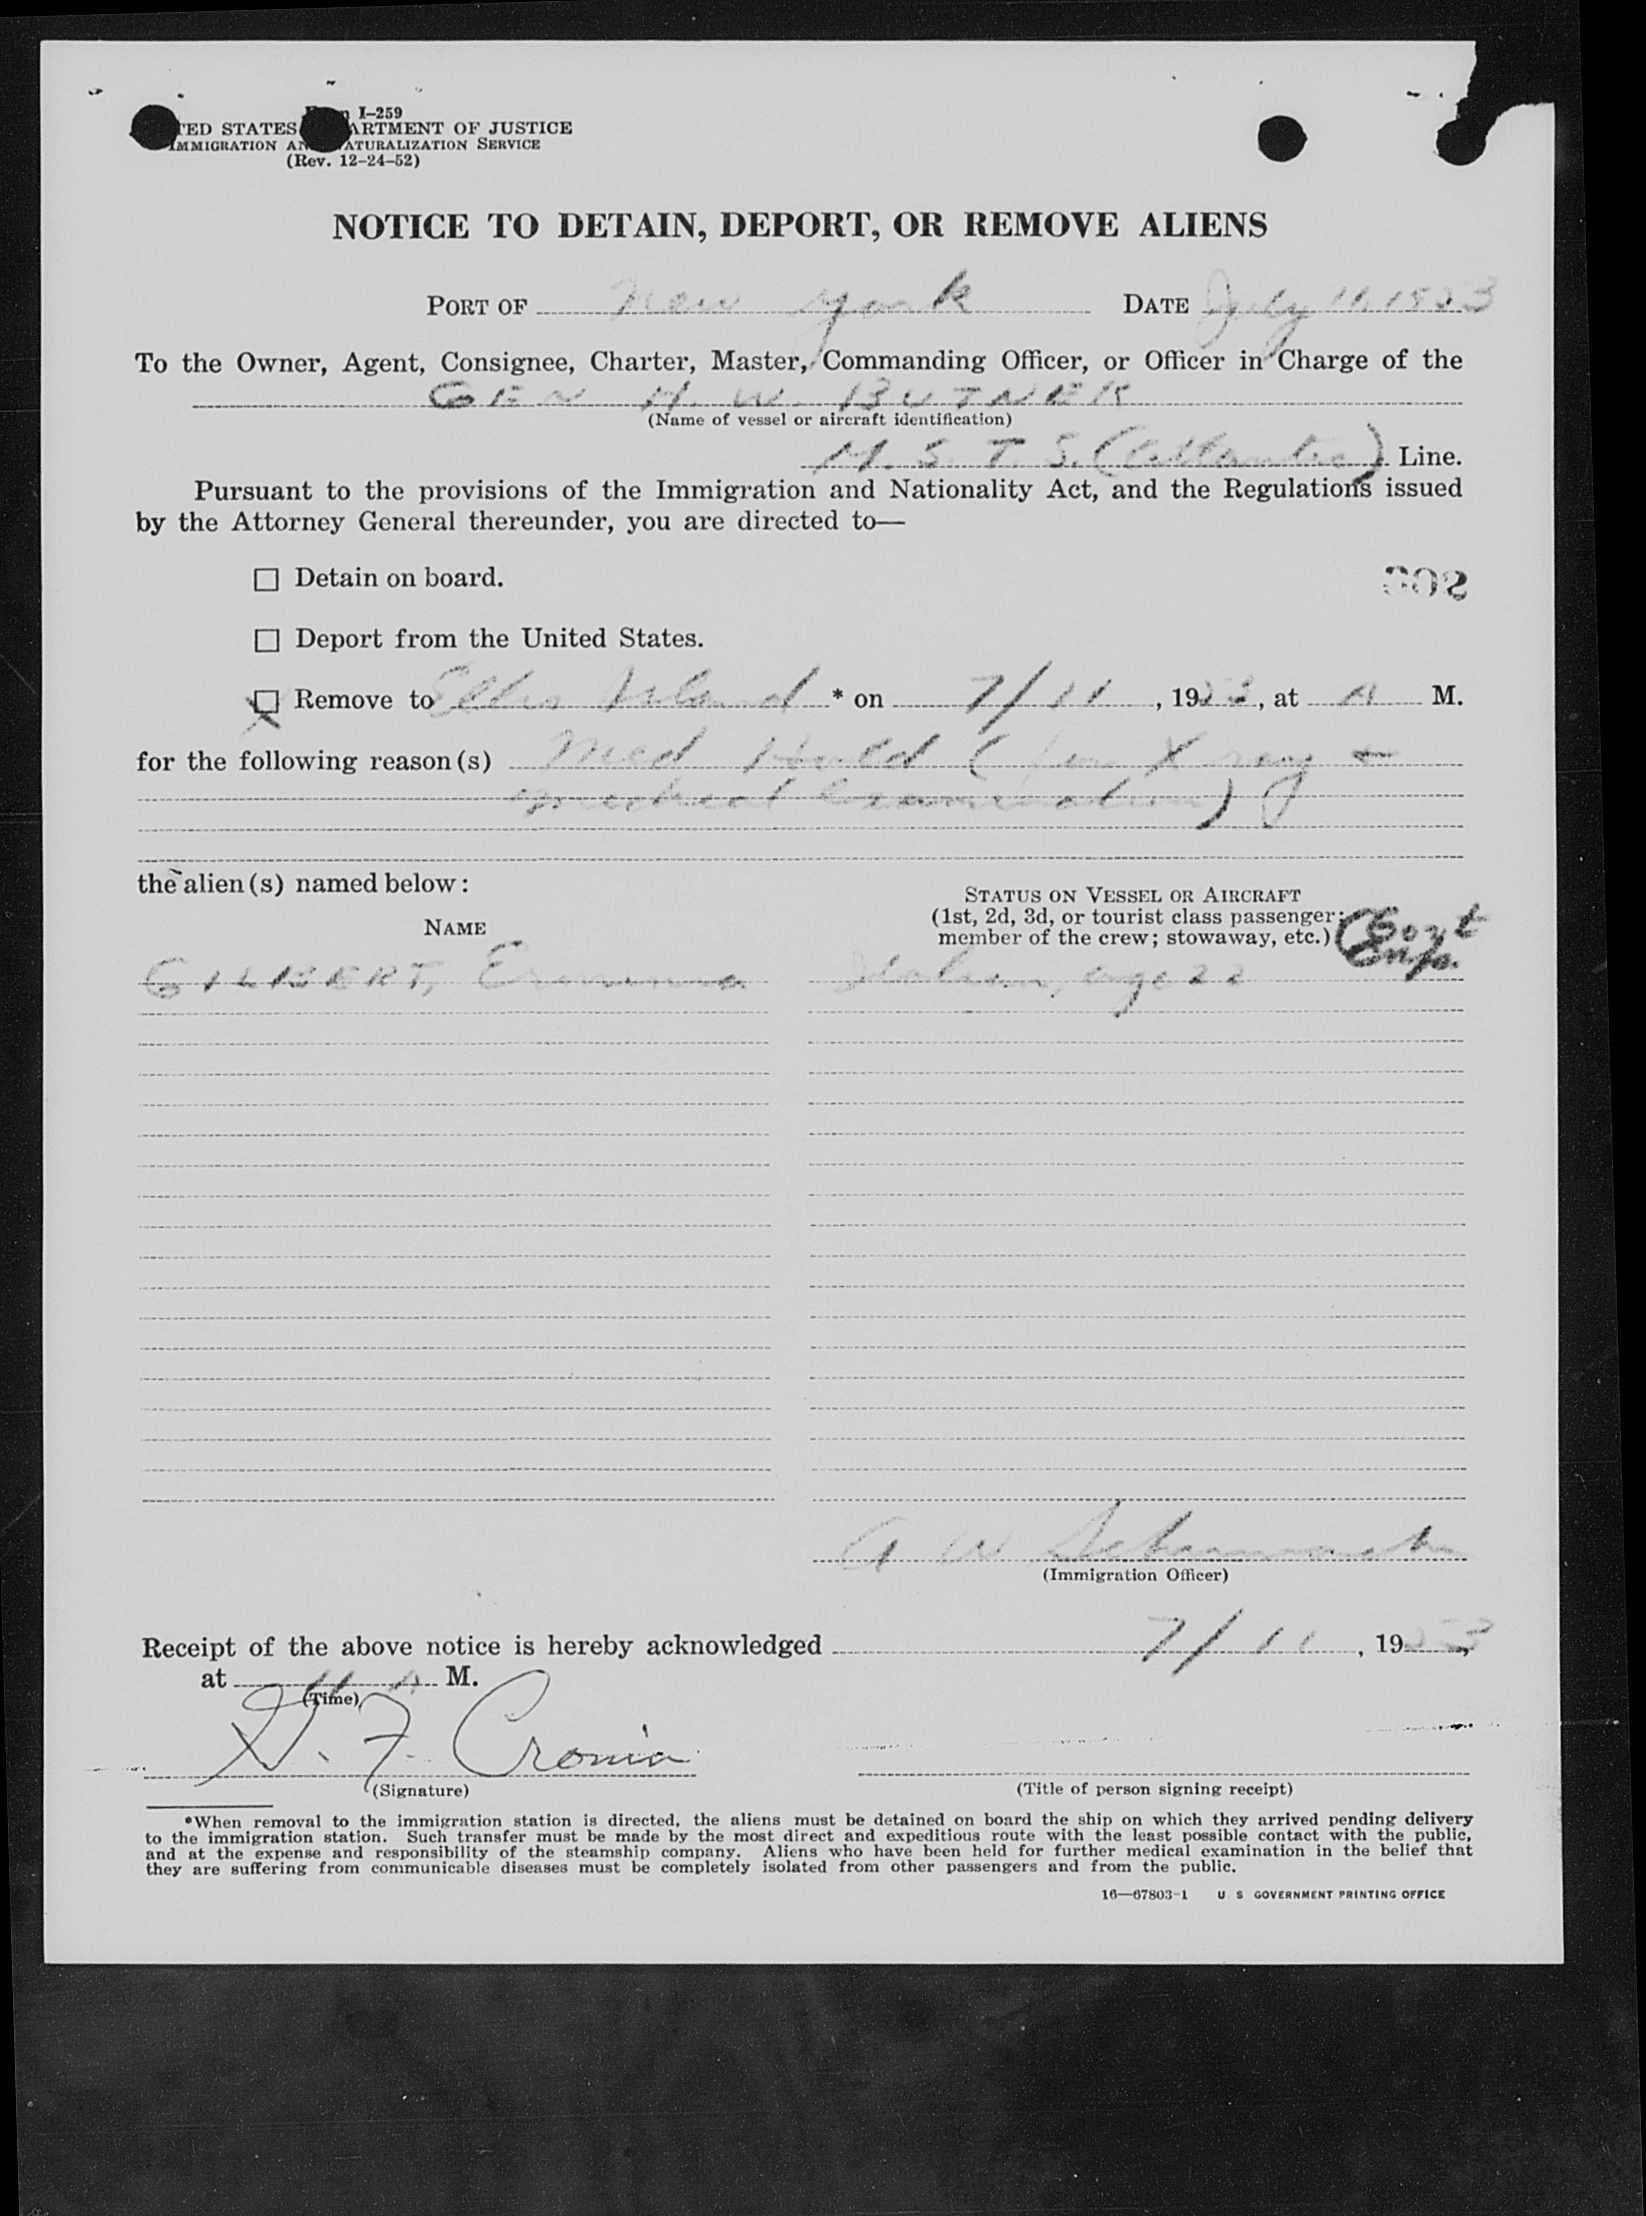 Form I–259
TED STATES ARTMENT OF JUSTICE
IMMIGRATION AN ATURALIZATION SERVICE
(Rev. 12–24–52)
NOTICE TO DETAIN, DEPORT, OR REMOVE ALIENS
PORT OF New York DATE July 11, 1953
To the Owner, Agent, Consignee, Charter, Master, Commanding Officer, or Officer in Charge of the
GEN H. W. BUTNER
(Name of vessel or aircraft identification)
M. S. T. S. (Atlantic) Line.
Pursuant to the provisions of the Immigration and Nationality Act, and the Regulations issued
by the Attorney General thereunder, you are directed to—
☐ Detain on board.
☐ Deport from the United States.
☒ Remove to Ellis Island * on 7/11, 1953, at A M.
for the following reason(s) Med Hold (for X ray +
medical Examination)
the alien(s) named below:
STATUS ON VESSEL OR AIRCRAFT
(1st, 2d, 3d, or tourist class passenger;
NAME
member of the crew; stowaway, etc.) (Govt
Exp.
GILBERT, Erminia Italian, age 22
A W
(Immigration Officer)
Receipt of the above notice is hereby acknowledged 7/11, 1953,
at 11 A M.
(Time)
F. Cronin
(Signature)
(Title of person signing receipt)
*When removal to the immigration station is directed, the aliens must be detained on board the ship on which they arrived pending delivery
to the immigration station. Such transfer must be made by the most direct and expeditious route with the least possible contact with the public,
and at the expense and responsibility of the steamship company. Aliens who have been held for further medical examination in the belief that
they are suffering from communicable diseases must be completely isolated from other passengers and from the public.
16—67803-1 U S GOVERNMENT PRINTING OFFICE